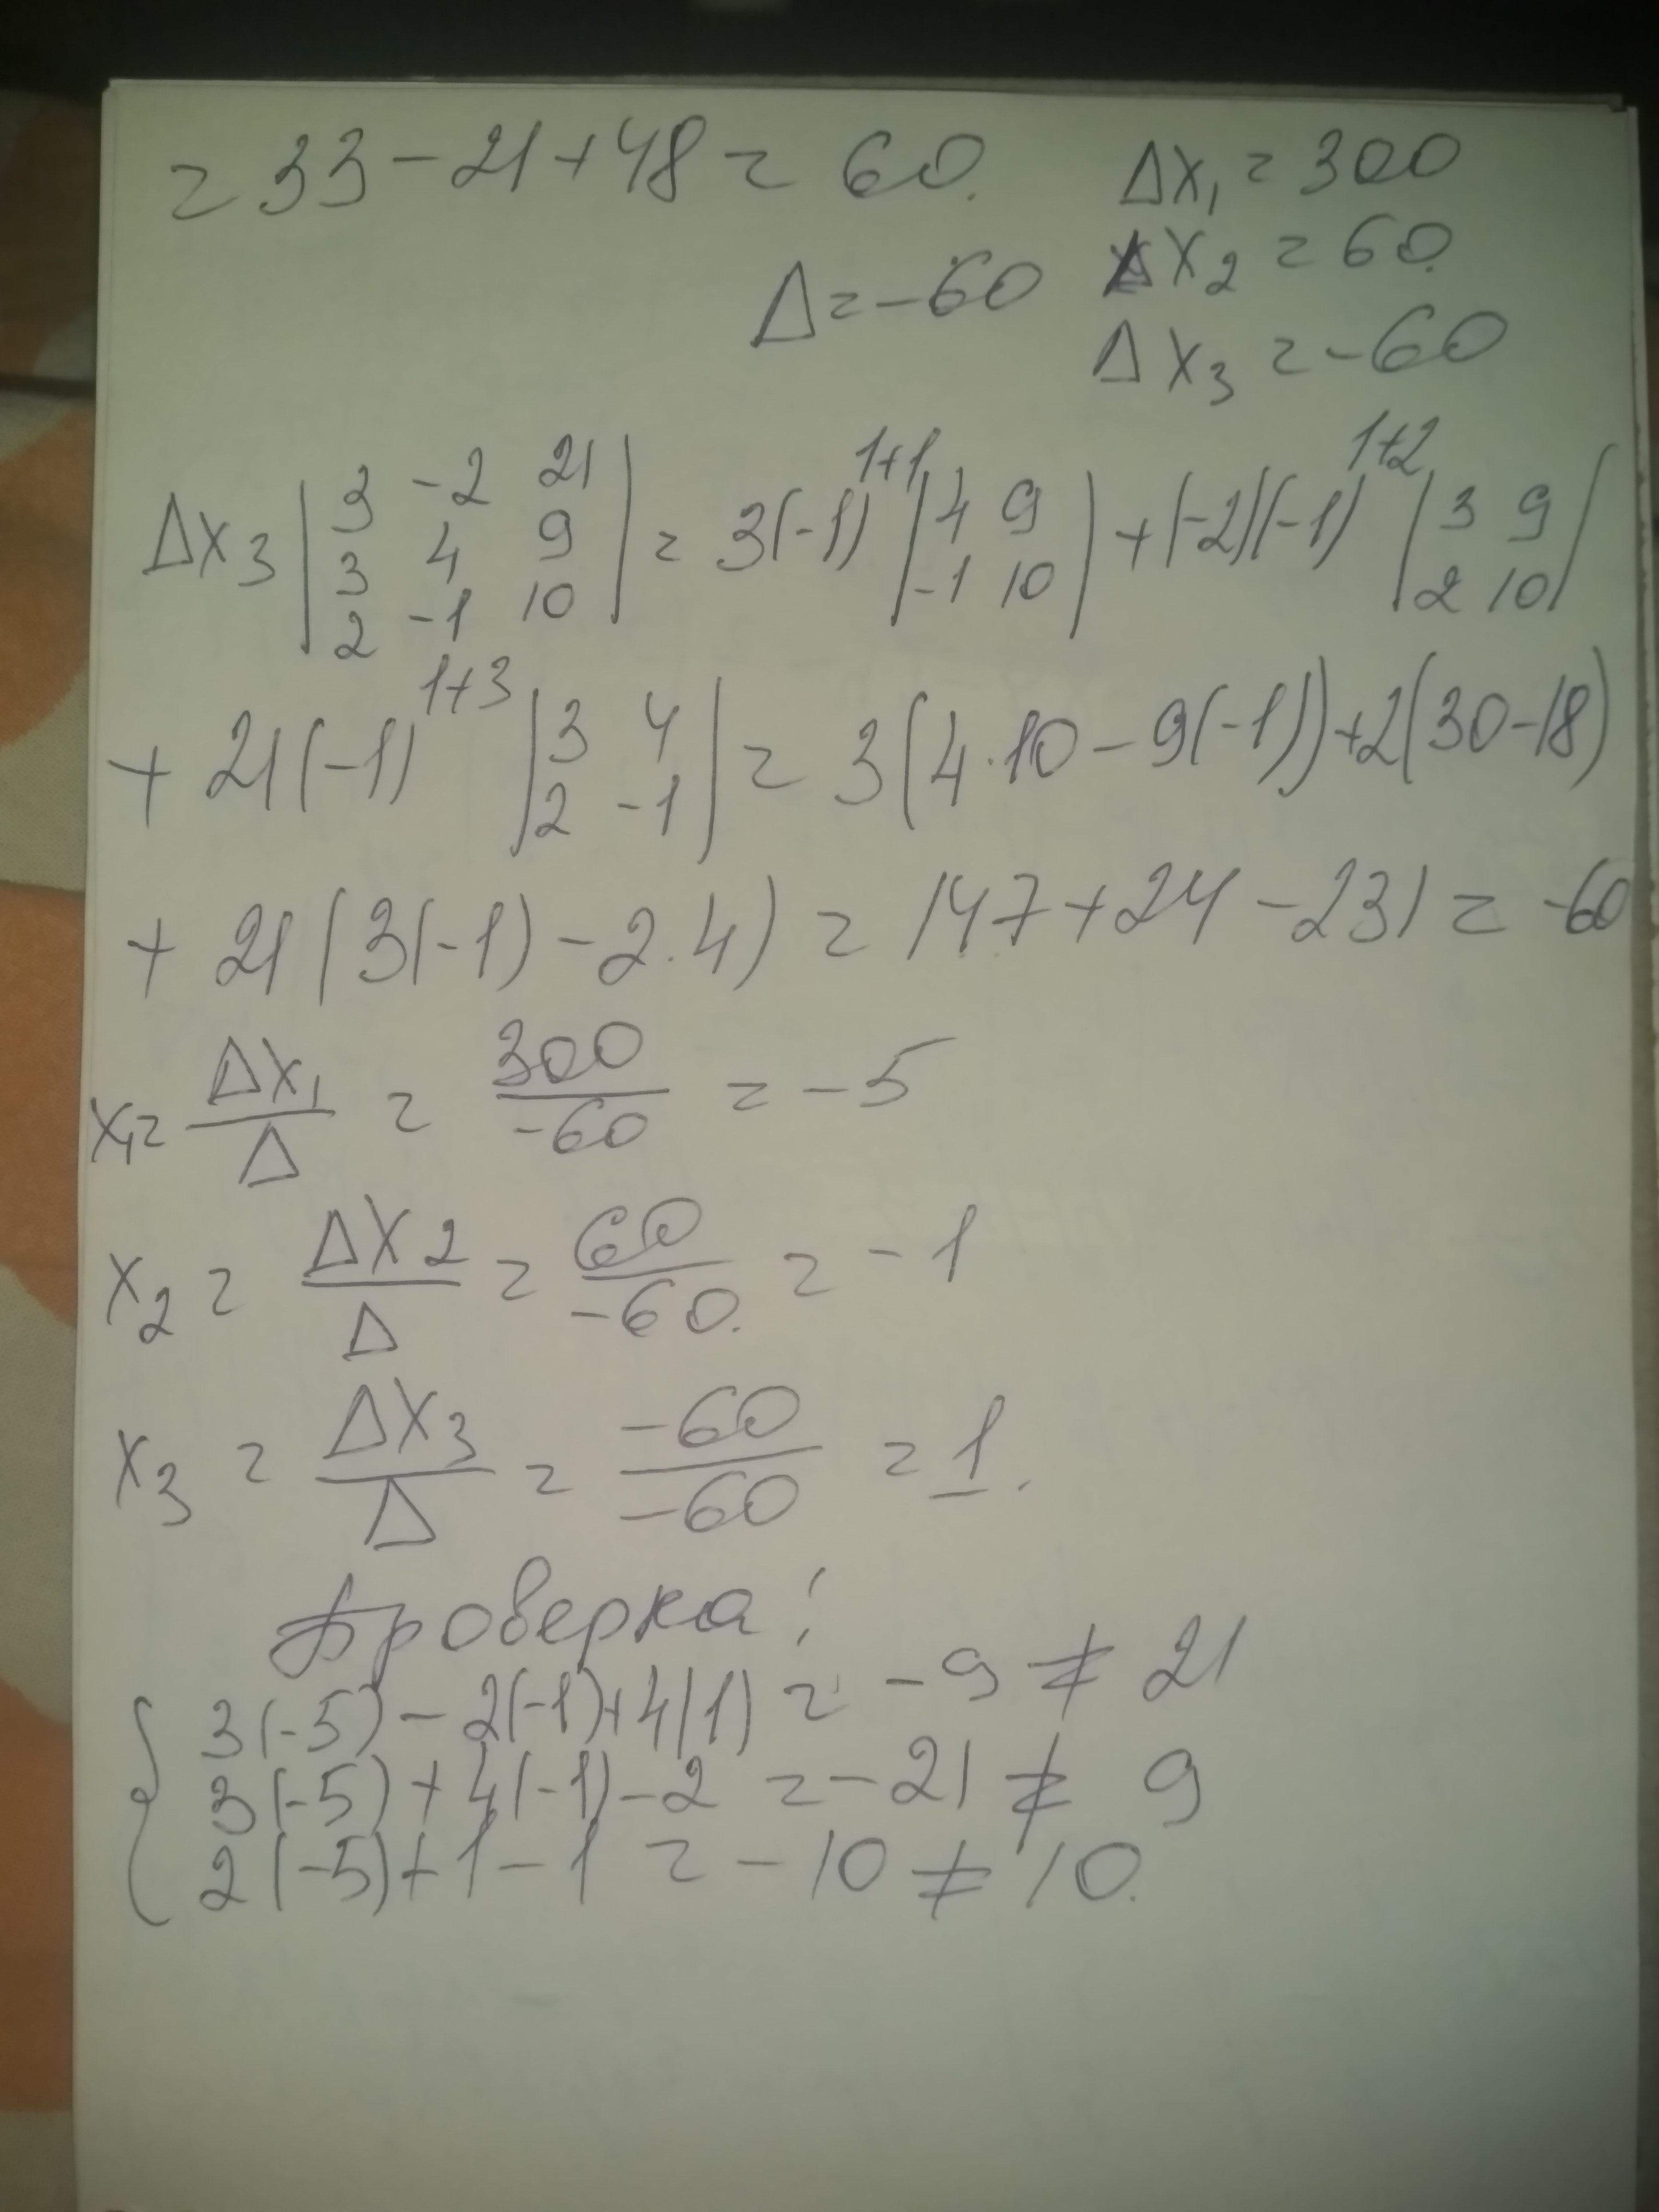 = 33 - 21 + 48 = 60. Δx₁ = 300
Δ = -60 Δx₂ = 60.
Δx₃ = -60
Δx₃ |3 -2 21; 3 4 9; 2 -1 10| = 3(-1)¹⁺¹ |4 9; -1 10| + (-2)(-1)¹⁺² |3 9; 2 10|
+ 21(-1)¹⁺³ |3 4; 2 -1| = 3(4·10 - 9(-1)) + 2(30-18)
+ 21(3(-1) - 2·4) = 147 + 24 - 231 = -60
x₁ = Δx₁/Δ = 300/-60 = -5
x₂ = Δx2/Δ = 60/-60. = -1
x₃ = Δx₃/Δ = -60/-60 = 1.
Проверка:
{ 3(-5) - 2(-1) + 4(1) = -9 ≠ 21
3(-5) + 4(-1) - 2 = -21 ≠ 9
2(-5) + 1 - 1 = -10 ≠ 10.